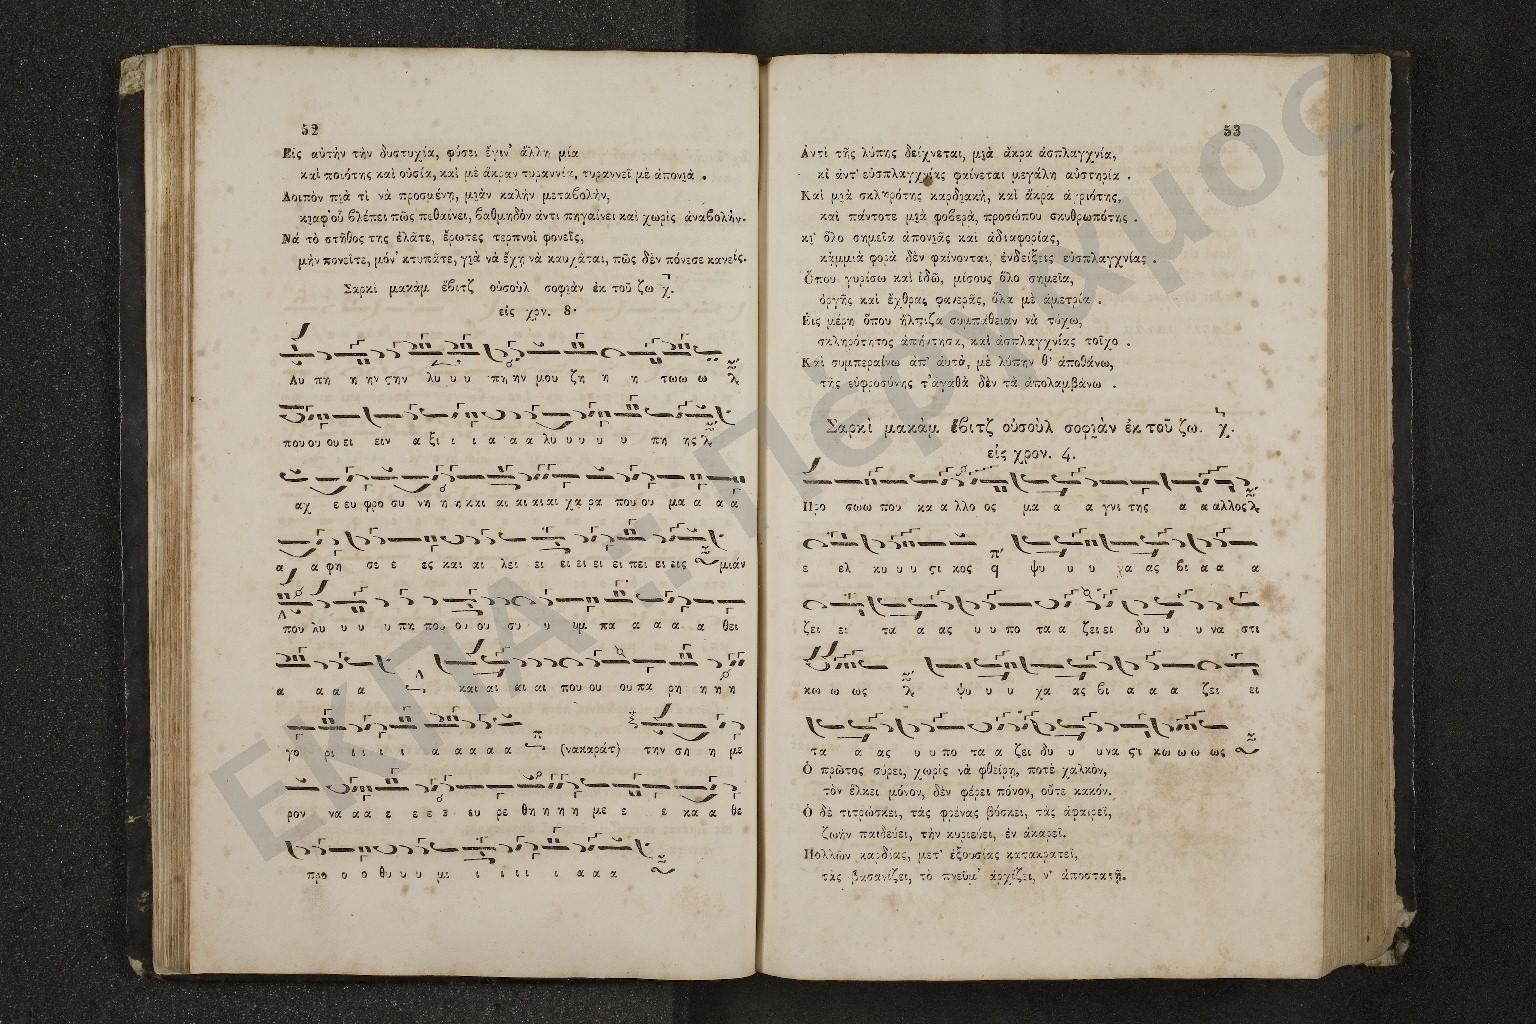 52
Εἰς αὐτὴν τὴν δυστυχία, φύσει ἔγιν' ἄλλη μία
καὶ ποιότης καὶ οὐσία, καὶ μὲ ἄκραν τυραννία, τυραννεῖ μὲ ἀπονιὰ .
Λοιπὸν πιὰ τὶ νὰ προσμένη, μιὰν καλὴν μεταβολὴν,
κιαφ'οὗ βλέπει πῶς πεθαίνει, βαθμηδὸν ἀντι πηγαίνει καὶ χωρὶς ἀναβολὴν.
Νά τὸ στῆθος της ἐλᾶτε, ἔρωτες τερπνοὶ φονεῖς,
μὴν πονεῖτε, μόν' κτυπᾶτε, γιὰ νὰ ἔχῃ νὰ καυχᾶται, πῶς δὲν πόνεσε κανείς.
Σαρκὶ μακὰμ ἔβιτζ οὐσοὺλ σοφιὰν ἐκ τοῦ ζω χ.
εἰς χρν. 8·
Λυ πη η ην την λυ υ υ πη ην μου ζη η η τωω ω
που ου ου ει ειν α ξι ι ι α α α λυ υ υ υ υ πη ης
αχ ε ευ φρο συ νη η η και αι αι αι αι χα ρα που ου μα α α α
α α φη σε ε ες και αι λει ει ει ει ει ει πει ει εις μιάν
που λυ υ υ υ πα που ου ου συ υ υμ πα α α α α θει
α α α α και αι αι αι που ου ου πα ρη η η η
γο ρι ι ι ι ι α α α α α (νακαράτ) την ση η με
ρον να α α ε ε ε ε ευ ρε θη η η η με ε ε κα α θε
προ ο ο θυ υ υ μι ι ι ι ι ι α α α
53
Ἀντὶ τῆς λύπης δείχνεται, μιὰ ἄκρα ἀσπλαγχνία,
κἰ ἀντ' εὐσπλαγχνίας φαίνεται μεγάλη αὐστηρία .
Καὶ μιὰ σκληρότης καρδιακὴ, καὶ ἄκρα ἀγριότης,
καὶ πάντοτε μιὰ φοβερὰ, προσώπου σκυθρωπότης .
κι' ὅλο σημεῖα ἀπονιᾶς καὶ ἀδιαφορίας,
κᾀμμιὰ φορὰ δὲν φαίνονται, ἐνδείξεις εὐσπλαγχνίας .
Ὅπου γυρίσω καὶ ἰδῶ, μίσους ὅλο σημεῖα,
ὀργῆς καὶ ἔχθρας φανερᾶς, ὅλα μὲ ἀμετρία .
Εἰς μέρη ὅπου ἤλπιζα συμπάθειαν νὰ τύχω,
σκληρότητος ἀπήντησα, καὶ ἀσπλαγχνίας τοῖχο .
Καὶ συμπεραίνω ἀπ' αὐτὰ, μὲ λύπην θ' ἀποθάνω,
τῆς εὐφροσύνης τ'ἀγαθὰ δὲν τὰ ἀπολαμβάνω .
Σαρκὶ μακὰμ ἔβιτζ οὐσοὺλ σοφιὰν ἐκ τοῦ ζω. χ.
εἰς χρον. 4.
Προ σωω που κα α λλο ος μα α α γνι της α α αλλος
ε ελ κυ υ υ ςι κος ψυ υ υ χα ας βι α α α
ζει ει τα α ας υ υ πο τα α ζει ει δυ υ υ να στι
κω ω ως ψυ υ υ χα ας βι α α α ζει ει
τα α ας υ υ πο τα α ζει δυ υ υνα ςι κω ω ω ως
Ὁ πρῶτος σύρει, χωρὶς νὰ φθείρῃ, ποτὲ χαλκὸν,
τὸν ἕλκει μόνον, δὲν φέρει πόνον, οὔτε κακόν.
Ὁ δὲ τιτρώσκει, τὰς φρένας βόσκει, τὰς ἀφαιρεῖ,
ζωὴν παιδεύει, τὴν κυριεύει, ἐν ἀκαρεῖ.
Πολλῶν καρδίας, μετ' ἐξουσίας κατακρατεῖ,
τὰς βασανίζει, τὸ πνεῦμ' ἀρχίζει, ν' ἀποστατῇ.
ΕΚΠΑ: Πέργαμος